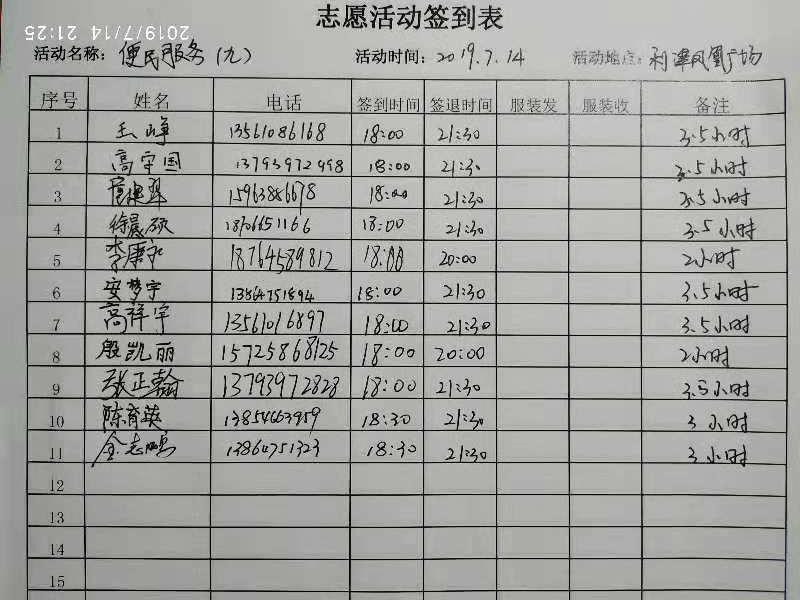 志愿活动签到表
2019/7/14 21:25
活动名称: 便民服务(九) 活动时间: 2019.7.14 活动地点: 利津凤凰广场
序号 姓名 电话 签到时间 签退时间 服装发 服装收 备注
1 王峥 13561086168 18:00 21:30 3.5小时
2 高宇国 13793972998 18:00 21:30 3.5小时
3 15963886678 18:00 21:30 3.5小时
4 徐晨硕 18706651166 18:00 21:30 3.5小时
5 李康永 18764589812 18:00 20:00 2小时
6 安梦宇 13864751894 18:00 21:30 3.5小时
7 高祥宇 13561016897 18:00 21:30 3.5小时
8 殷凯丽 15725868125 18:00 20:00 2小时
9 张正翰 13793972828 18:00 21:30 3.5小时
10 陈育英 13854663959 18:30 21:30 3小时
11 金志鹏 13864751323 18:30 21:30 3小时
12
13
14
15